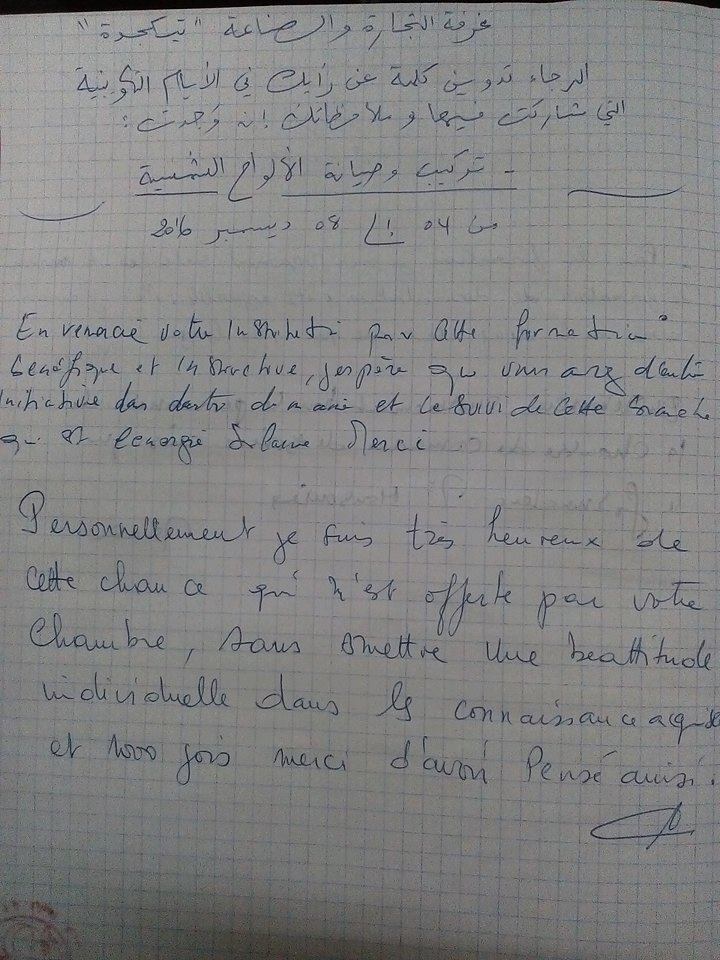 غرفة التجارة والصناعة "تيكجدة"
الرجاء تدوين كلمة عن رأيك في الأيام التكوينية
التي شاركت فيها وملاحظاتك إن وجدت :
- تركيب وصيانة الألواح الشمسية
من 04 إلى 08 ديسمبر 2016
En remercie votre par cette formation
benéfique et instructive, j'espère que vous avez d'autre
initiative dan et le suivi de cette branche
qui est l'energie Solaire Merci
Personnellement je suis très heureux de
cette chance qui n'est offerte par votre
Chambre, sans omettre une beattitude
individuelle dans ls connaissance acquise
et 1000 fois merci d'avoir Pensé ainsi.